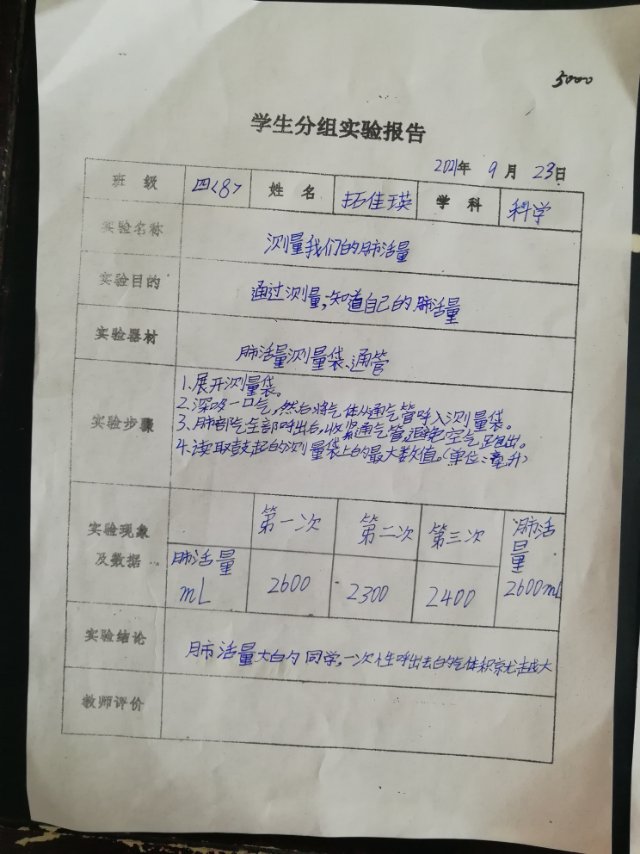 5000
学生分组实验报告
2021年 9月 23日
班级 四<8> 姓名 拓佳瑛 学科 科学
实验名称 测量我们的肺活量
实验目的 通过测量,知道自己的肺活量
实验器材 肺活量测量袋、通管
实验步骤
1.展开测量袋。
2.深吸一口气,然后将气体从通气管呼入测量袋。
3.肺部气全部呼出后,收紧通气管,避免空气跑出。
4.读取鼓起的测量袋上的最大数值。(单位:毫升)
实验现象及数据
第一次 第二次 第三次 肺活量
肺活量 mL 2600 2300 2400 2600mL
实验结论 肺活量大的同学,一次 呼出去的气体 就越大
教师评价